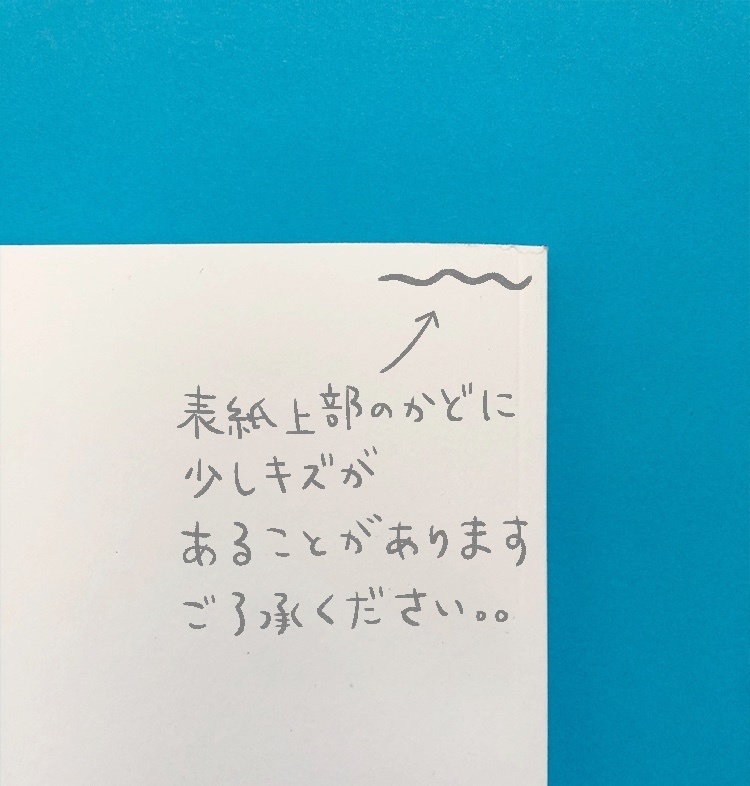 表紙上部のかどに
少しキズが
あることがあります
ご了承ください。。